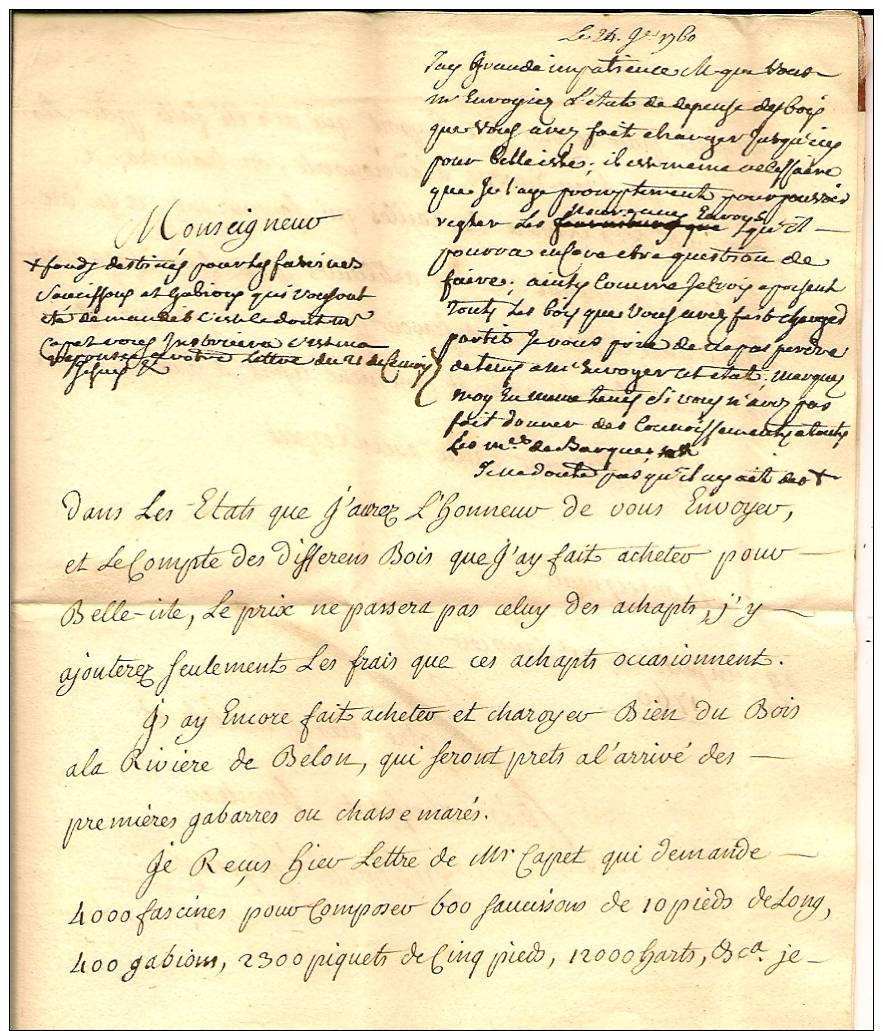 Le 24. 9e. 1760
J'ay Grande impatience M. que vous
m'Envoyiez L'etat de depense des bois
que vous avez fait charger jusqu'icy
pour belleisle; il est meme necessaire
que Je l'aye promptement pour pouvoir
regler Les nouveaux Envoys qu'il
pourra encore etre question de
faire; ainsy comme Je crois a present
touts Les bois que vous avez fait charger
partis Je vous prie de ne pas perdre
de tems a m'Envoyer cet etat. marquez
moy En meme tems si vous n'avez pas
fait donner des Connoissements a touts
Les mes. de Barques
Je ne doute pas qu'il n'y ait des +
Monseigneur
+ fonds destinés pour les fascines
Saucissons et Gabions qui vous ont
été demandés c'est ce dont Mr
Capet vous Instruira c'est ma
reponse a votre Lettre du 21 de ce mois
Je suis &
dans Les Etats que J'aurez L'Honneur de vous Envoyer,
et Le Compte des differens Bois que J'ay fait acheter pour
Belle-isle, Le prix ne passera pas celuy des achapts, j'y
ajouterez seulement Les frais que ces achapts occasionnent.
J'ay Encore fait acheter et charoyer Bien du Bois
ala Rivière de Belon, qui seront prets al'arrivé des
premières gabarres ou chasse marés.
Je Reçus hier Lettre de Mr. Capet qui demande
4000 fascines pour Composer 600 saucissons de 10 pieds de Long,
400 gabions, 2300 piquets de Cinq pieds, 12000 harts, &ca. je